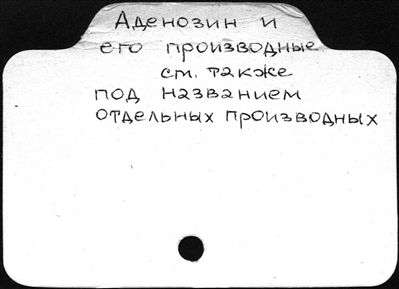 Аденозин и
его производные
см. также
под названием
отдельных производных